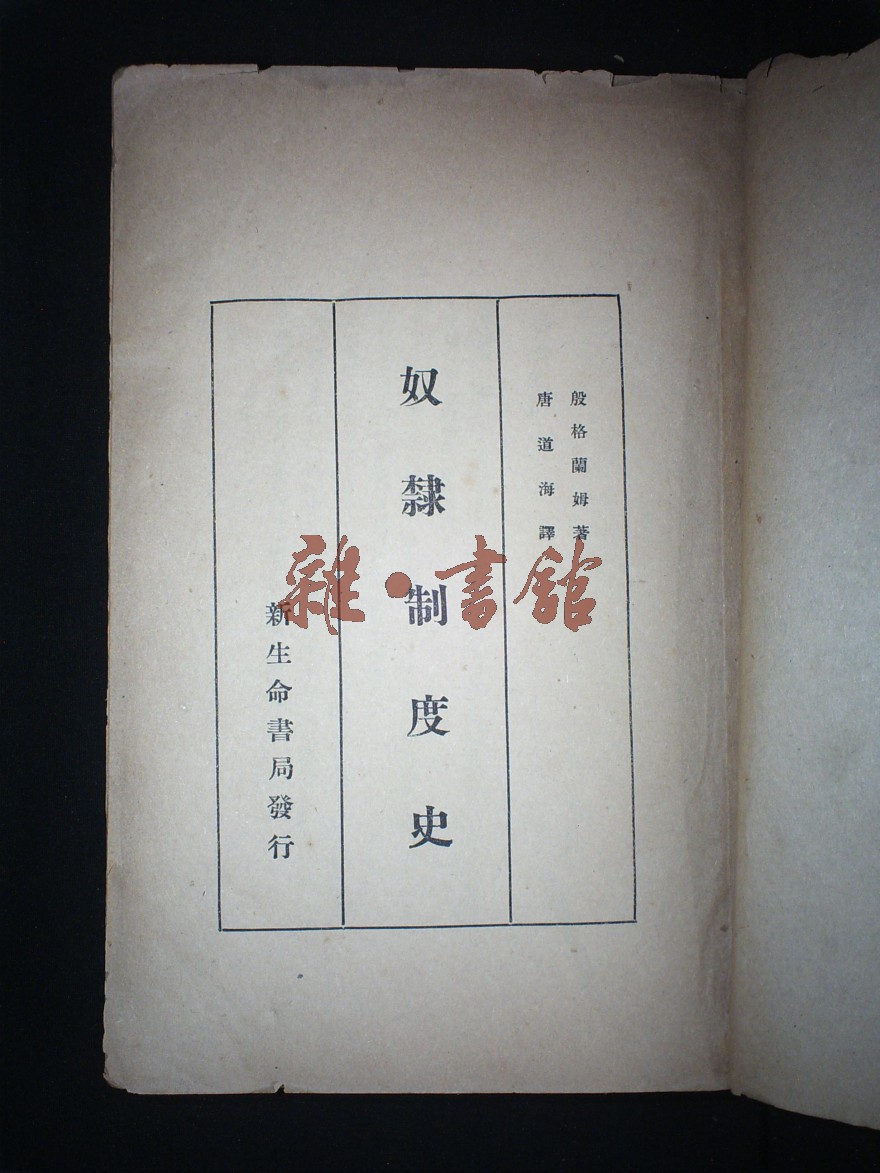 殷格蘭姆著
唐道海譯
奴隸制度史
新生命書局發行
雜·書館